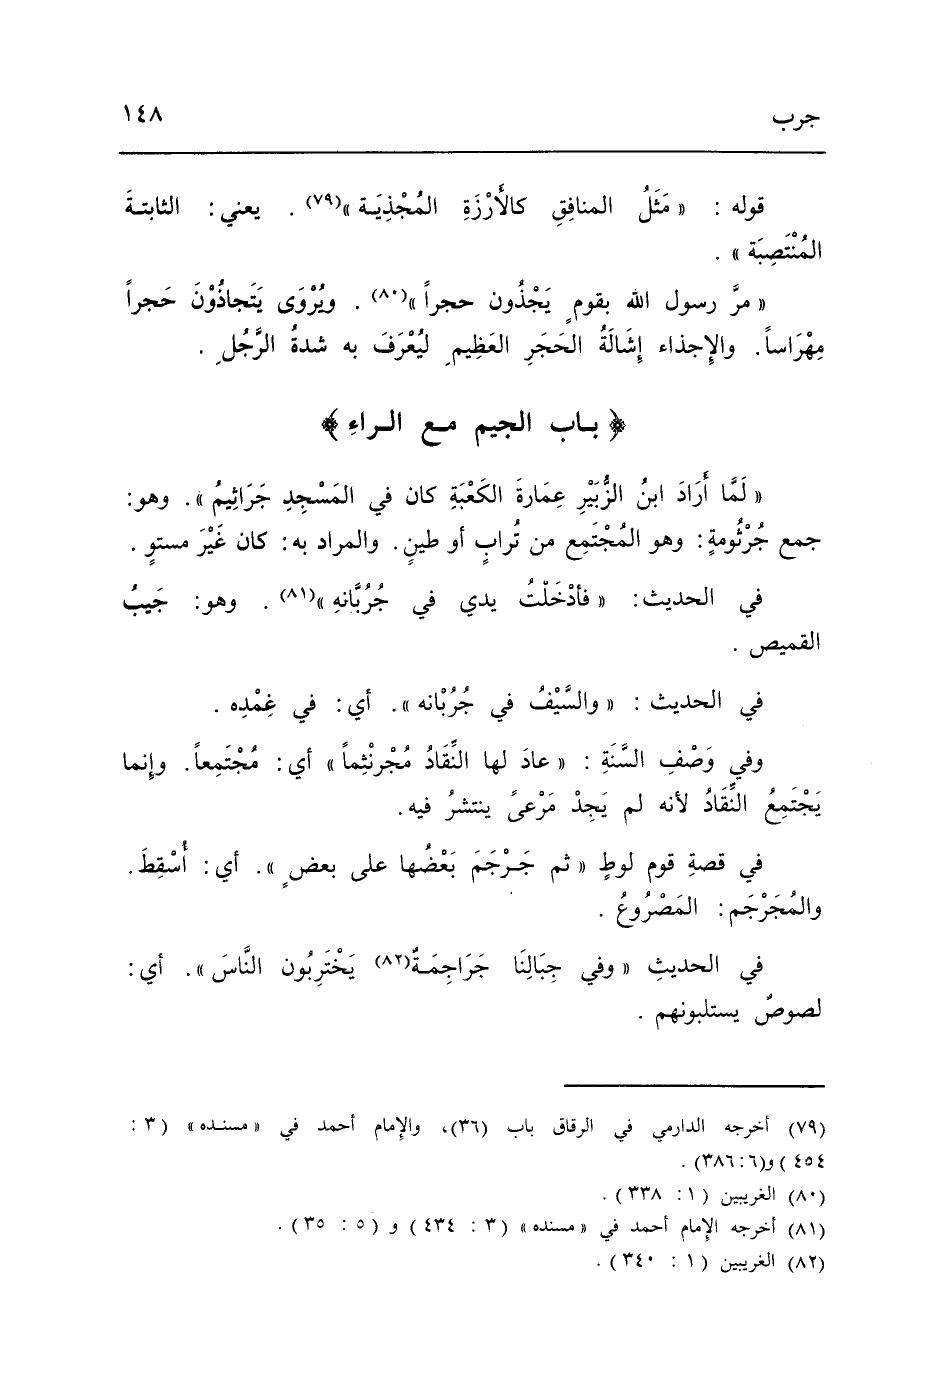 جرب ١٤٨
قوله : « مَثَلُ المنافِقِ كالأَرْزَةِ المُجْذِيَـة »(٧٩) . يعني : الثابتـةَ
المُنْتَصِبَة » .
« مرَّ رسول الله بقومٍ يَجْذُون حجراً »(٨٠) . ويُرْوَى يَتَجاذُوْنَ حَجراً
مِهْرَاساً. والإجذاء إشَالَةُ الحَجَرِ العَظِيمِ لِيُعْرَفَ به شدةُ الرَّجُلِ .
﴿ بـاب الجيم مـع الـراءِ ﴾
« لَمَّا أَرَادَ ابنُ الزُّبَيْرِ عِمَارةَ الكَعْبَةِ كان في المَسْجِدِ جَرَاثِيمُ ». وهو:
جمع جُرْثُومةٍ: وهو المُجْتَمِع من تُرابٍ أو طينٍ. والمراد به: كان غَيْرَ مستوٍ .
في الحديث: « فأدْخَلْتُ يدي في جُرُبَّانهِ »(٨١) . وهو: جَيبُ
القميص .
في الحديث : « والسَّيْفُ في جُرُبْانه ». أي: في غِمْدِه .
وفي وَصْفِ السَّنَةِ : « عادَ لها النِّقَادُ مُجْرنْثِماً » أي: مُجْتَمِعاً. وإنما
يَجْتَمِعُ النِّقَادُ لأنه لم يَجِدْ مَرْعىً ينتشرُ فيه.
في قصةِ قوم لوطٍ « ثم جَـرْجَمَ بَعْضُها على بعضٍ ». أي: أُسْقِطَ.
والمُجَرْجَم: المَصْرُوعُ .
في الحديثِ « وفي جِبَالِنَا جَرَاجِمَـةٌ(٨٢) يَخْتَرِبُون النَّاسَ ». أي:
لصوصٌ يستلبونهم .
(٧٩) أخرجه الدارمي في الرقاق باب (٣٦)، والإمام أحمد في « مسنـده » (٣ :
٤٥٤ ) و(٦: ٣٨٦) .
(٨٠) الغريبين (١: ٣٣٨) .
(٨١) أخرجه الإمام أحمد في « مسنده » (٣ : ٤٣٤ ) و (٥ : ٣٥) .
(٨٢) الغريبين (١ : ٣٤٠) .